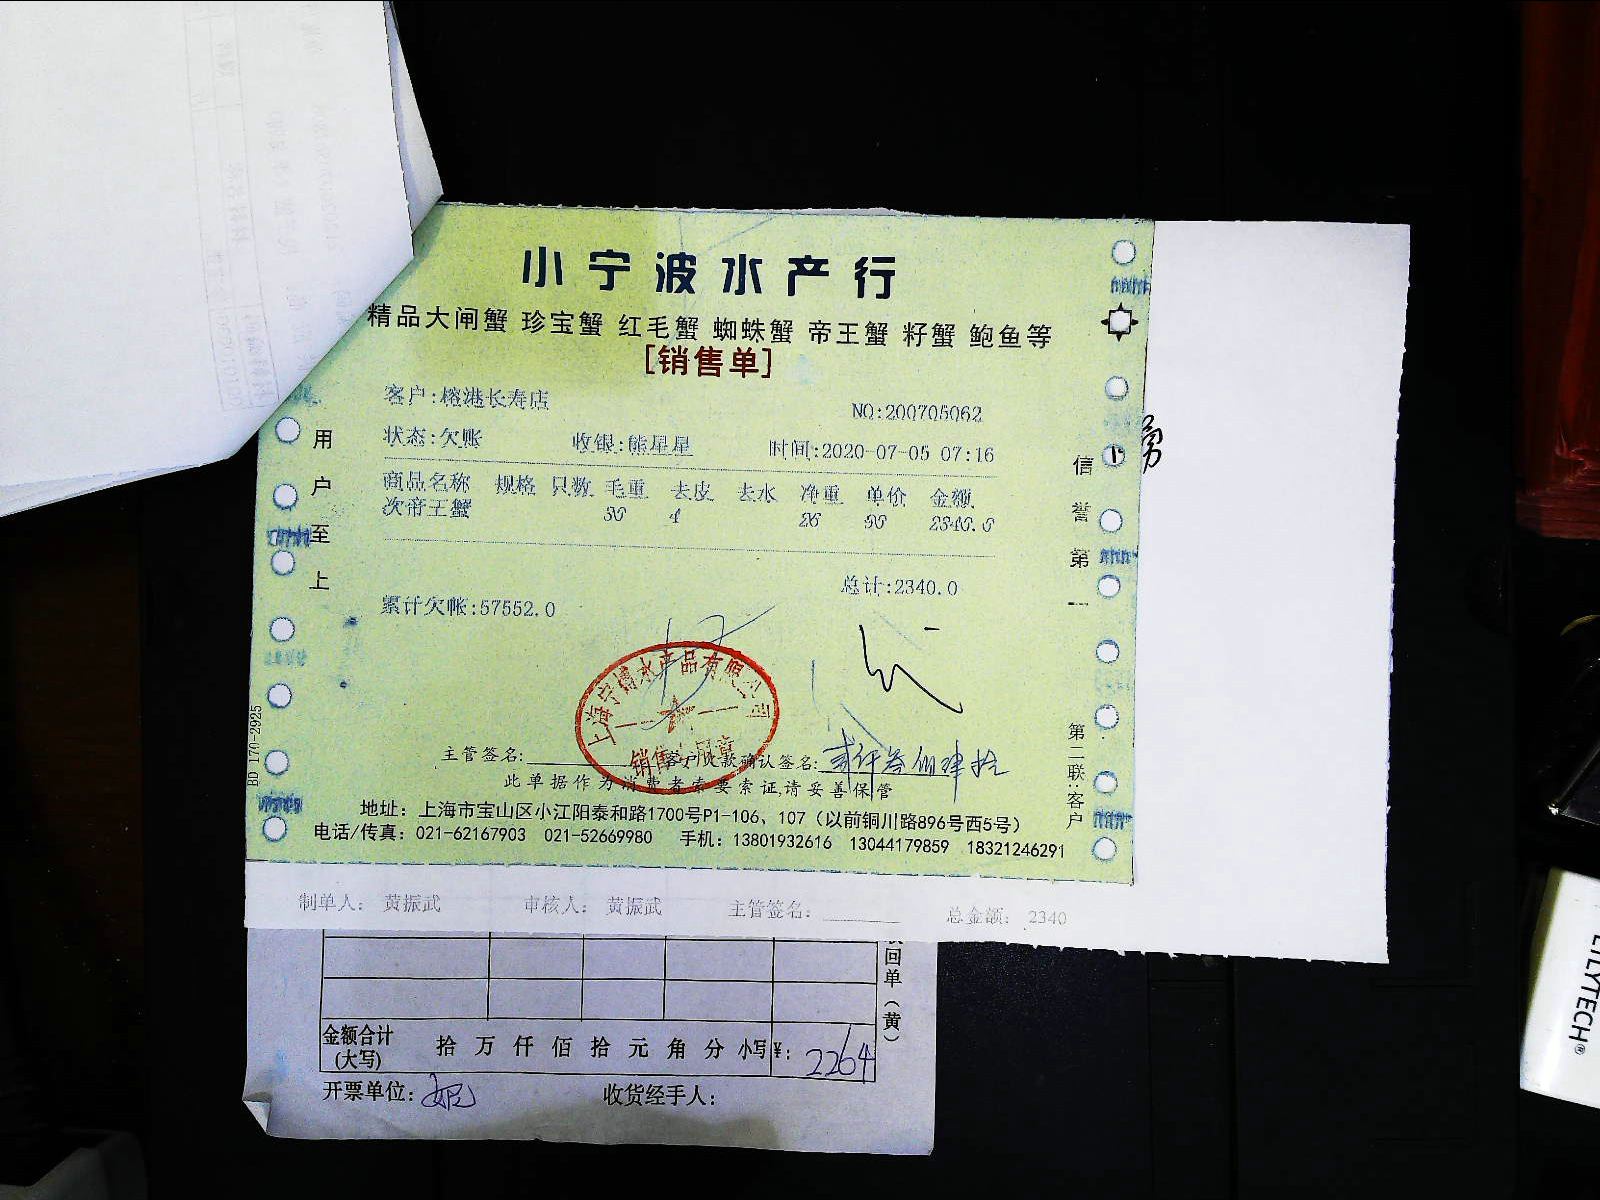 小宁波水产行
精品大闸蟹 珍宝蟹 红毛蟹 蜘蛛蟹 帝王蟹 籽蟹 鲍鱼等
[销售单]
客户:榕港长寿店
NO:200705062
状态:欠账 收银:熊星星 时间:2020-07-05 07:16
商品名称 规格 只数 毛重 去皮 去水 净重 单价 金额
次帝王蟹 30 4 26 90 2340.0
总计:2340.0
累计欠帐:57552.0
用户至上
信誉第一
勇
第二联:客户
BD 170-2925
上海宁博水产品有限公司
销售专用章
主管签名: 客户欠款确认签名: 贰仟叁佰肆拾
此单据作为消费者索要索证,请妥善保管
地址：上海市宝山区小江阳泰和路1700号P1-106、107（以前铜川路896号西5号）
电话/传真：021-62167903 021-52669980 手机：13801932616 13044179859 18321246291
制单人： 黄振武 审核人： 黄振武 主管签名： 总金额： 2340
回单（黄）
金额合计
(大写) 拾 万 仟 佰 拾 元 角 分 小写¥: 2264
开票单位: 收货经手人:
LILYTECH®